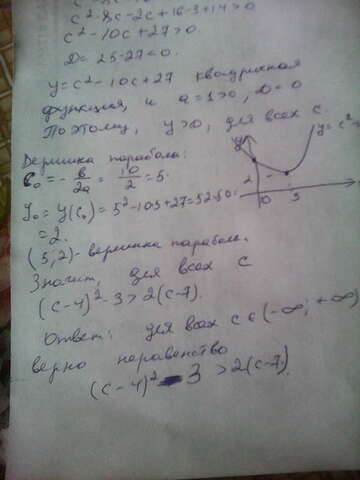 c²-8c-2c+16-3+14>0
c²-10c+27>0
D= 25-27<0.
y=c²-10c+27 квадричная
функция, и a=1>0, D<0
Поэтому, y>0, для всех c
Вершина параболы:
c₀=-b/2a=10/2=5.
y₀=y(c₀)=5²-10·5+27=52-50=
=2.
(5;2)- вершина параболы.
Значит, для всех c
(c-4)²-3>2(c-7).
Ответ: для всех c∈(-∞; +∞)
верно неравенство
(c-4)²-3>2(c-7).
y
y=c²-
2
0
5